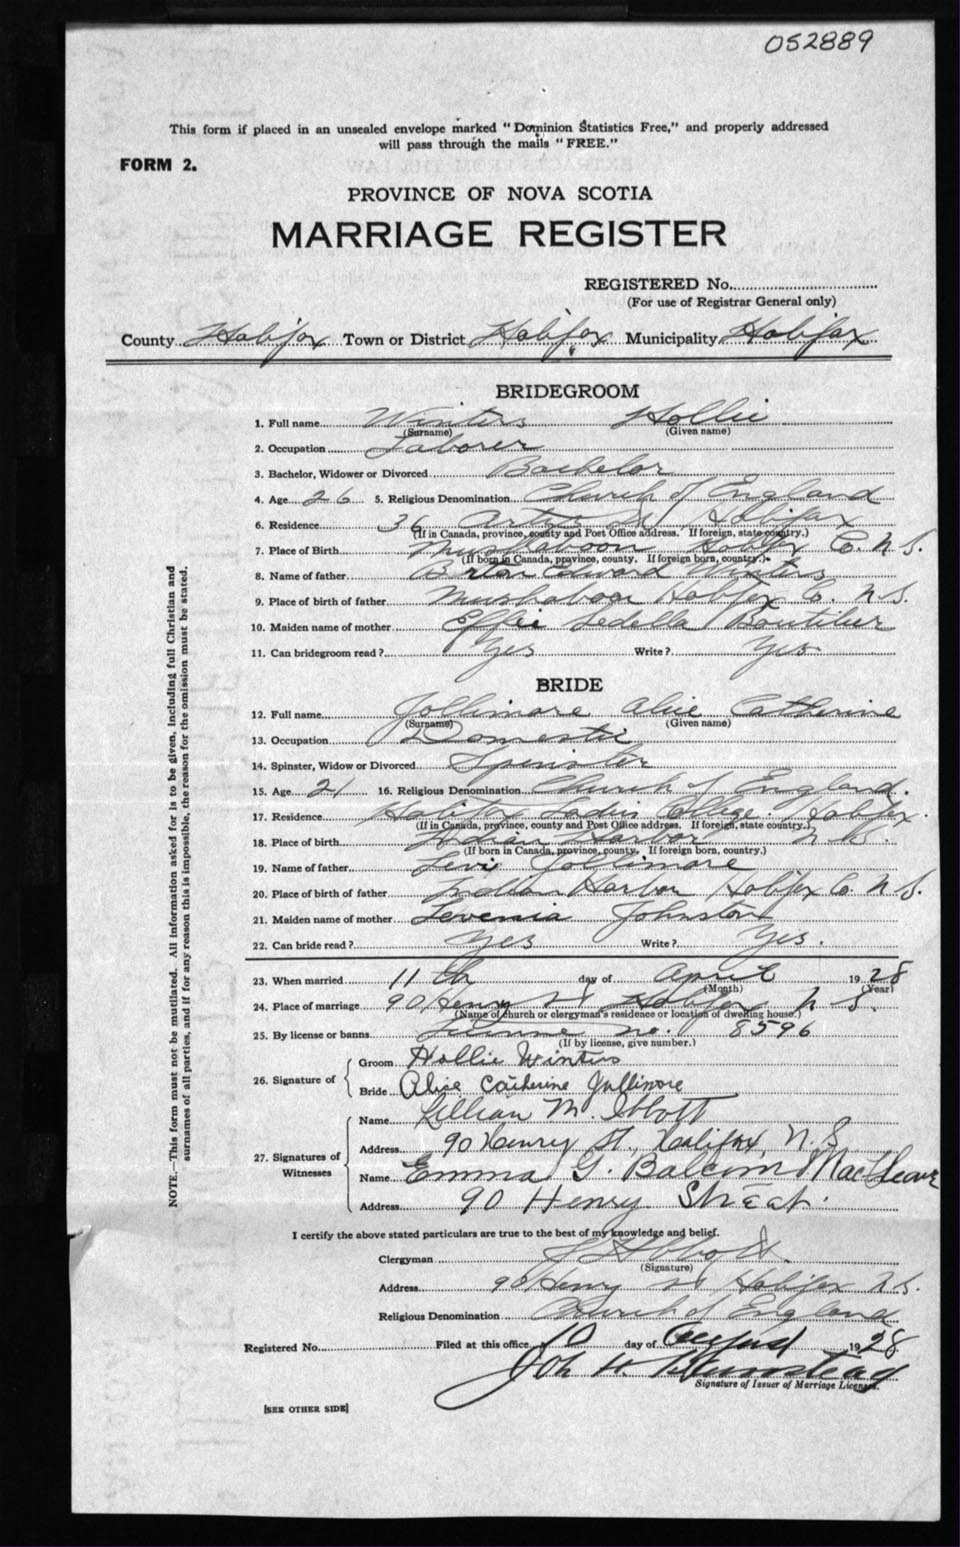 052889
This form if placed in an unsealed envelope marked "Dominion Statistics Free," and properly addressed
will pass through the mails "FREE."
FORM 2.
PROVINCE OF NOVA SCOTIA
MARRIAGE REGISTER
REGISTERED No.
(For use of Registrar General only)
County Halifax Town or District Halifax Municipality Halifax
BRIDEGROOM
1. Full name Winters Hollie
(Surname) (Given name)
2. Occupation Laborer
3. Bachelor, Widower or Divorced Bachelor
4. Age 26 5. Religious Denomination Church of England
6. Residence 36 St Halifax
(If in Canada, province, county and Post Office address. If foreign, state country.)
7. Place of Birth Halifax Co. N. S.
(If born in Canada, province, county. If foreign born, country.)
8. Name of father Edward Winters
9. Place of birth of father Mushaboom Halifax Co. N. S.
10. Maiden name of mother Effie Ledella Boutilier
11. Can bridegroom read? Yes Write? Yes
BRIDE
12. Full name Jollimore Alice Catherine
(Surname) (Given name)
13. Occupation Domestic
14. Spinster, Widow or Divorced Spinster
15. Age 21 16. Religious Denomination Church of England.
17. Residence Halifax Ladies College Halifax.
(If in Canada, province, county and Post Office address. If foreign, state country.)
18. Place of birth Indian Harbor N S.
(If born in Canada, province, county. If foreign born, country.)
19. Name of father Levi Jollimore
20. Place of birth of father Indian Harbor Halifax Co. N. S.
21. Maiden name of mother Levenia Johnston
22. Can bride read? Yes Write? Yes.
23. When married 11th day of April 1928
(Month) (Year)
24. Place of marriage 90 Henry St Halifax N S.
(Name of church or clergyman's residence or location of dwelling house.)
25. By license or banns License no. 8596
(If by license, give number.)
26. Signature of Groom Hollie Winters
Bride Alice Catherine Jullimore
27. Signatures of Witnesses Name Lillian M. Abbott
Address 90 Henry St., Halifax, N. S
Name Emma G. Balcom
Address 90 Henry Street.
NOTE.—This form must not be mutilated. All information asked for is to be given, including full Christian and
surnames of all parties, and if for any reason this is impossible, the reason for the omission must be stated.
I certify the above stated particulars are true to the best of my knowledge and belief.
Clergyman Abbott
(Signature)
Address 90 Henry St Halifax N. S.
Religious Denomination Church of England
Registered No. Filed at this office 10 day of 1928
Signature of Issuer of Marriage License.
[SEE OTHER SIDE]